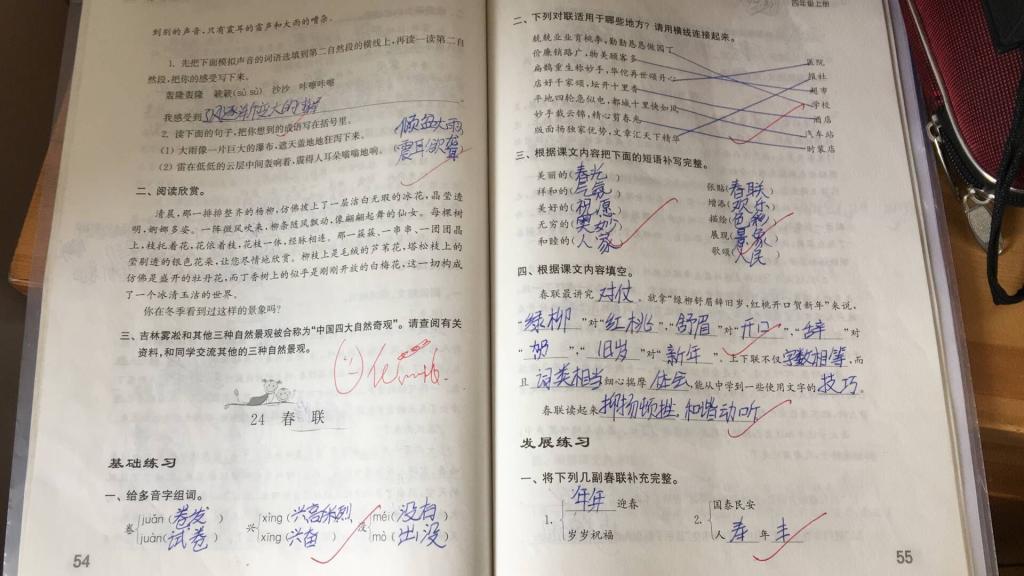 到别的声音,只有震耳的雷声和大雨的嘈杂。
1. 先把下面模拟声音的词语选填到第二自然段的横线上,再读一读第二自
然段,把你的感受写下来。
轰隆轰隆 簌簌(sù sù) 沙沙 咔嚓咔嚓
我感受到
2. 读下面的句子,把你想到的成语写在括号里。
(1) 大雨像一片巨大的瀑布,遮天盖地地狂泻下来。(倾盆大雨)
(2) 雷在低低的云层中间轰响着,震得人耳朵嗡嗡地响。(震耳欲聋)
二、阅读欣赏。
清晨,那一排排整齐的杨柳,仿佛披上了一层洁白无瑕的冰花,晶莹透
明,婀娜多姿。一阵微风吹来,柳条随风飘动,像翩翩起舞的仙女。每棵树
上,枝托着花,花依着枝,花枝一体,经脉相连。那一簇簇、一串串、一团团晶
莹剔透的银色花朵,让您尽情地欣赏。柳枝上是毛绒的芦苇花,塔松枝上的
仿佛是盛开的牡丹花,而丁香树上的似乎是刚刚开放的白梅花,这一切构成
了一个冰清玉洁的世界。
你在冬季看到过这样的景象吗?
三、吉林雾凇和其他三种自然景观被合称为“中国四大自然奇观”。请查阅有关
资料,和同学交流其他的三种自然景观。
24 春 联
基础练习
一、给多音字组词。
卷 juǎn(卷发) 兴 xìng(兴高采烈) 没 méi(没有)
juàn(试卷) xīng(兴奋) mò(出没)
54
四年级上册
二、下列对联适用于哪些地方?请用横线连接起来。
兢兢业业育桃李,勤勤恳恳做园丁
价廉销路广,物美顾客多 医院
扁鹊重生称妙手,华佗再世颂丹心 报社
店好千家颂,坛开十里香 超市
平地四轮急似电,都城十里快如风 学校
妙手裁云锦,精心剪春光 酒店
版面扬独家优势,文章汇天下精华 汽车站
时装店
三、根据课文内容把下面的短语补写完整。
美丽的(春光) 张贴(春联)
祥和的(气氛) 增添(欢乐)
美好的(祝愿) 描绘(色彩)
无穷的(奥妙) 展现(景象)
和睦的(人家) 歌颂(人民)
四、根据课文内容填空。
春联最讲究 对仗 。就拿“绿柳舒眉辞旧岁,红桃开口贺新年”来说,
“绿柳”对“红桃”,“舒眉”对“开口”,“辞”对
“ ”,“旧岁”对“新年”。上下联不仅字数相等,而
且 词类相当 细心揣摩 体会 ,能从中学到一些使用文字的 技巧 。
春联读起来 抑扬顿挫,和谐动听
发展练习
一、将下列几副春联补充完整。
1. 年年 迎春 2. 国泰民安
岁岁祝福 人 寿 年 丰
55